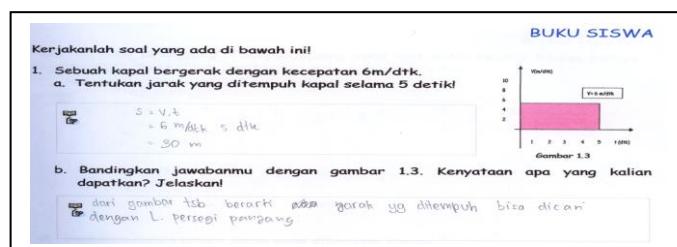 BUKU SISWA
Kerjakanlah soal yang ada di bawah ini!
1. Sebuah kapal bergerak dengan kecepatan 6m/dtk.
a. Tentukan jarak yang ditempuh kapal selama 5 detik!
S = V.t
= 6 m/dtk 5 dtk
= 30 m
V(m/dtk)
10
8
6
4
2
V=6 m/dtk
1 2 3 4 5 t(dtk)
Gambar 1.3
b. Bandingkan jawabanmu dengan gambar 1.3. Kenyataan apa yang kalian
dapatkan? Jelaskan!
dari gambar tsb berarti jarak yg ditempuh bisa dicari
dengan L. persegi panjang